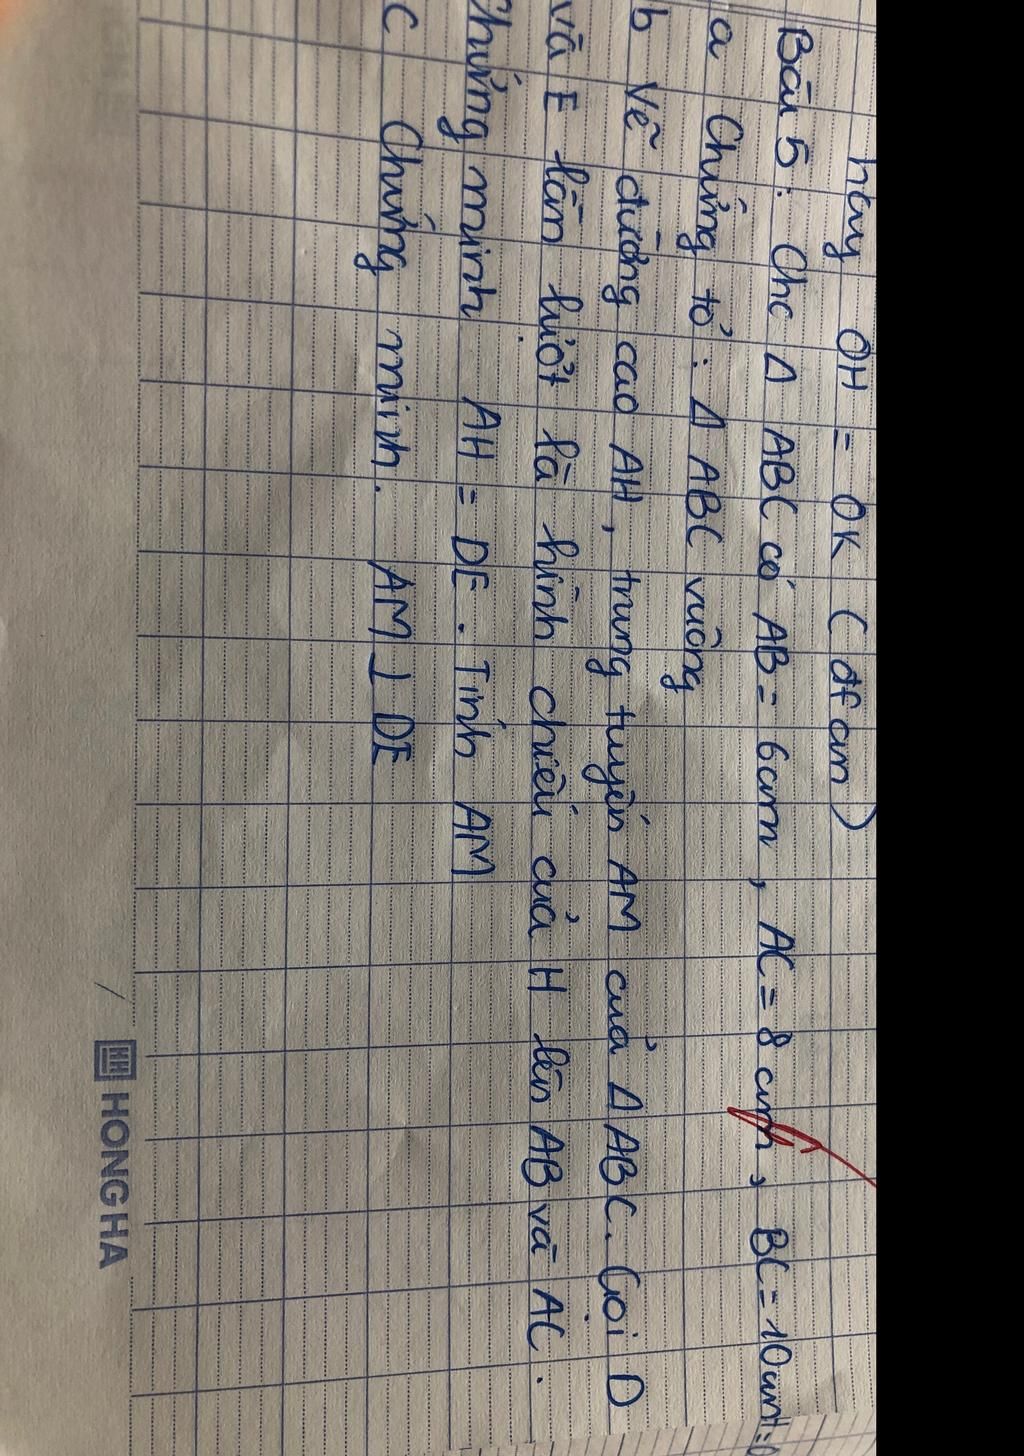 hay OH = OK (đfcm)
Bài 5: Cho Δ ABC có AB = 6cm, AC = 8cm, BC = 10cm
a Chứng tỏ: Δ ABC vuông
b Vẽ đường cao AH, trung tuyến AM của Δ ABC. Gọi D
và E lần lượt là hình chiếu của H lên AB và AC.
Chứng minh AH = DE. Tính AM
c Chứng minh. AM ⊥ DE
HH HONG HA